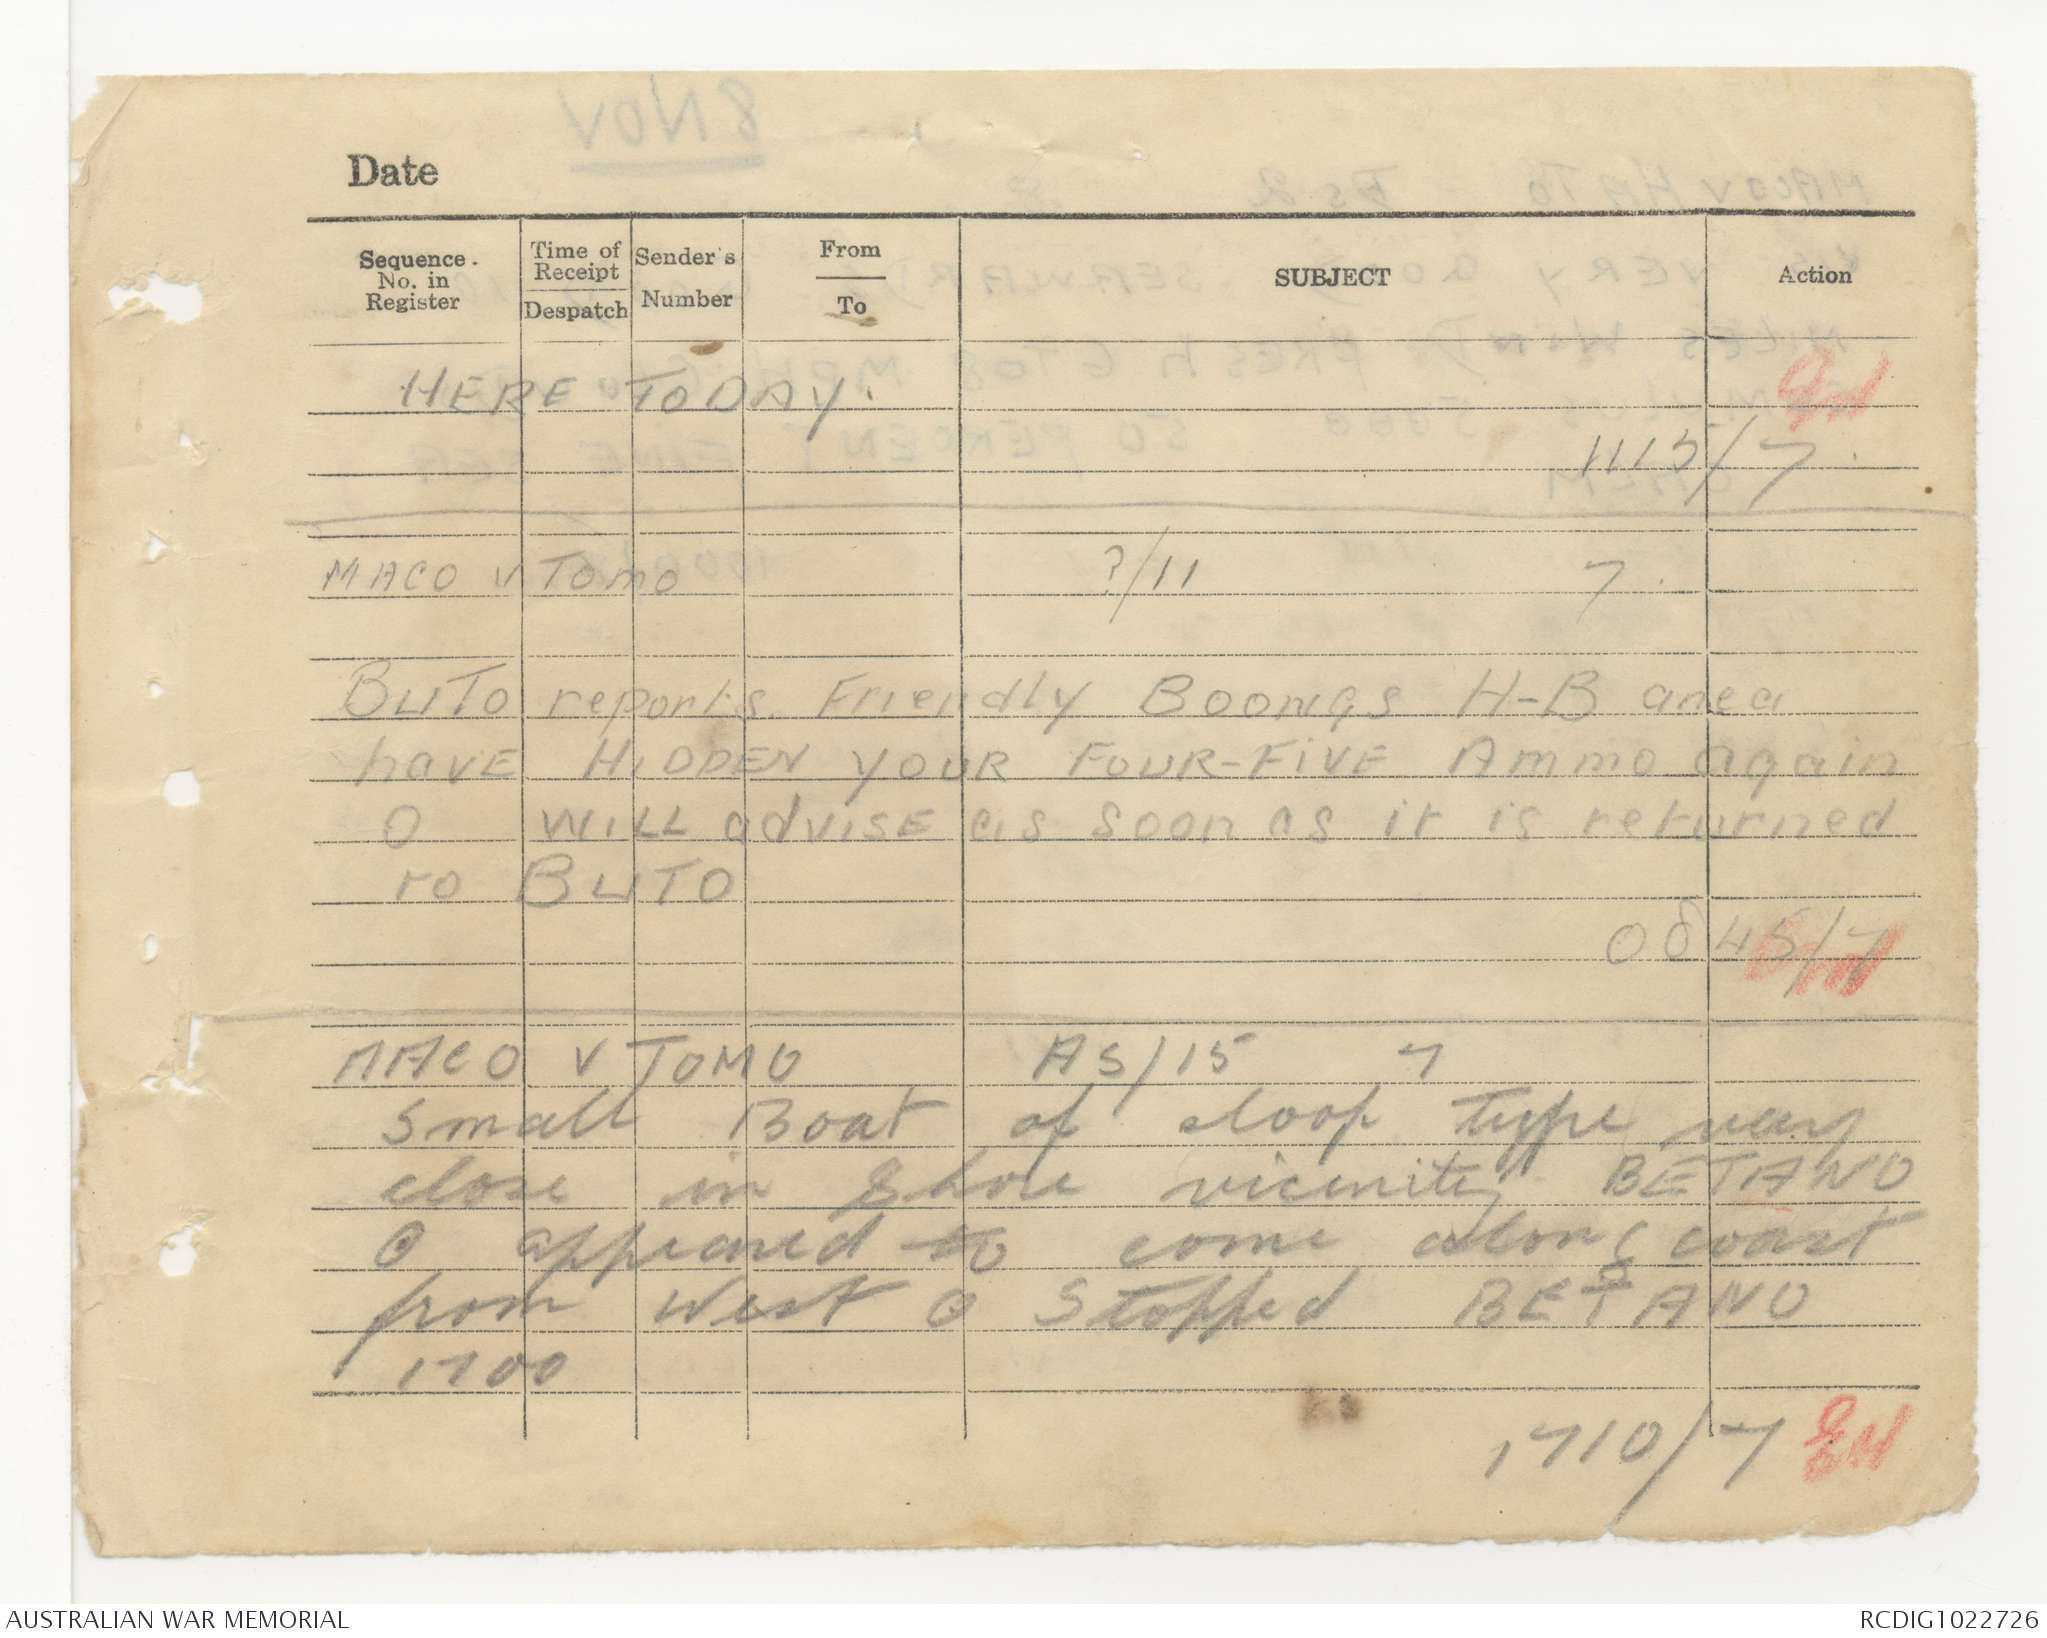 Date
Sequence No. in Register
Time of Receipt
Despatch
Sender's Number
From
To
SUBJECT
Action
HERE TODAY.
1115/7.
MACO V TOMO ?/11 7.
BUTO reports. Friendly Boongs H-B area
have HIDDEN YOUR FOUR-FIVE Ammo again
O WILL advise as soon as it is returned
to BUTO
0845/7
MACO V TOMO AS/15 7
Small Boat of sloop type very
close in Shore vicinity BETANO
O appeared to come along coast
from West O Stopped BETANO
1700
1710/7 EH
AUSTRALIAN WAR MEMORIAL
RCDIG1022726